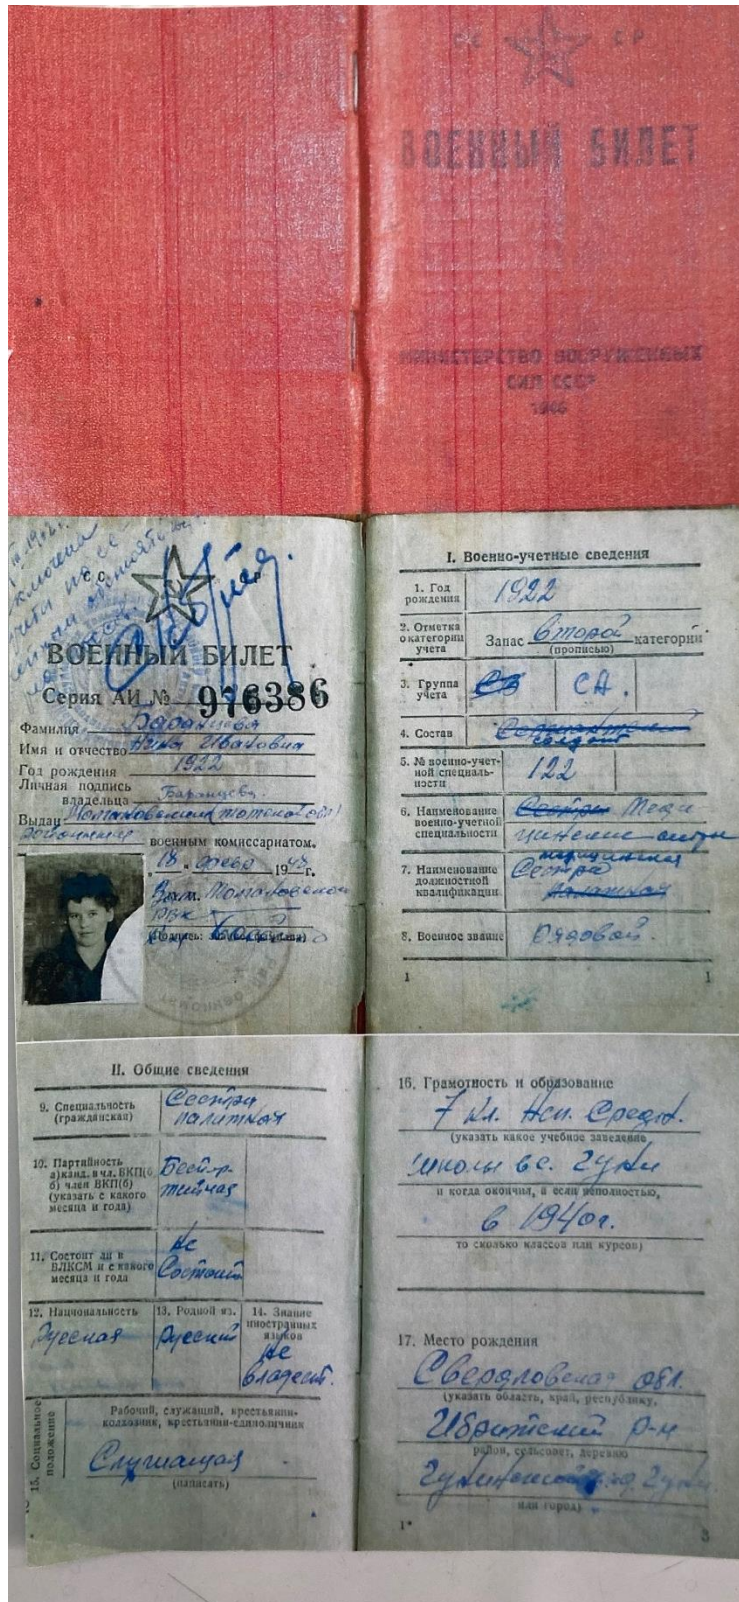 СС СР
ВОЕННЫЙ БИЛЕТ
МИНИСТЕРСТВО ВООРУЖЕННЫХ
СИЛ СССР
1946
СС СР
ВОЕННЫЙ БИЛЕТ
Серия АИ № 976386
Фамилия Баранцева
Имя и отчество Нина Ивановна
Год рождения 1922
Личная подпись
владельца Баранцева
Выдан
военным комиссариатом.
18 1948 г.
I. Военно-учетные сведения
1. Год
рождения 1922
2. Отметка
о категории
учета Запас второй категории
(прописью)
3. Группа
учета СА.
4. Состав солдат
5. № военно-учет-
ной специаль-
ности 122
6. Наименование
военно-учетной
специальности Меди
цинские сестры
7. Наименование
должностной
квалификации медицинская
Сестра
8. Военное звание Рядовой.
1 1
II. Общие сведения
9. Специальность
(гражданская) Сестра
палатная
10. Партийность
а) канд. в чл. ВКП(б)
б) член ВКП(б)
(указать с какого
месяца и года) Беспар-
тийная
11. Состоит ли в
ВЛКСМ и с какого
месяца и года Не
Состоит
12. Национальность Русская
13. Родной яз. Русский
14. Знание
иностранных
языков Не
владеет.
15. Социальное
положение
Рабочий, служащий, крестьянин-
колхозник, крестьянин-единоличник
Служащая
(написать)
16. Грамотность и образование
7 кл. Неп. Средн.
(указать какое учебное заведение,
школы в с.
и когда окончил, а если неполностью,
в 1940г.
то сколько классов или курсов)
17. Место рождения
Свердловская обл.
(указать область, край, республику,
р-н
район, сельсовет, деревню
или город)
1* 3